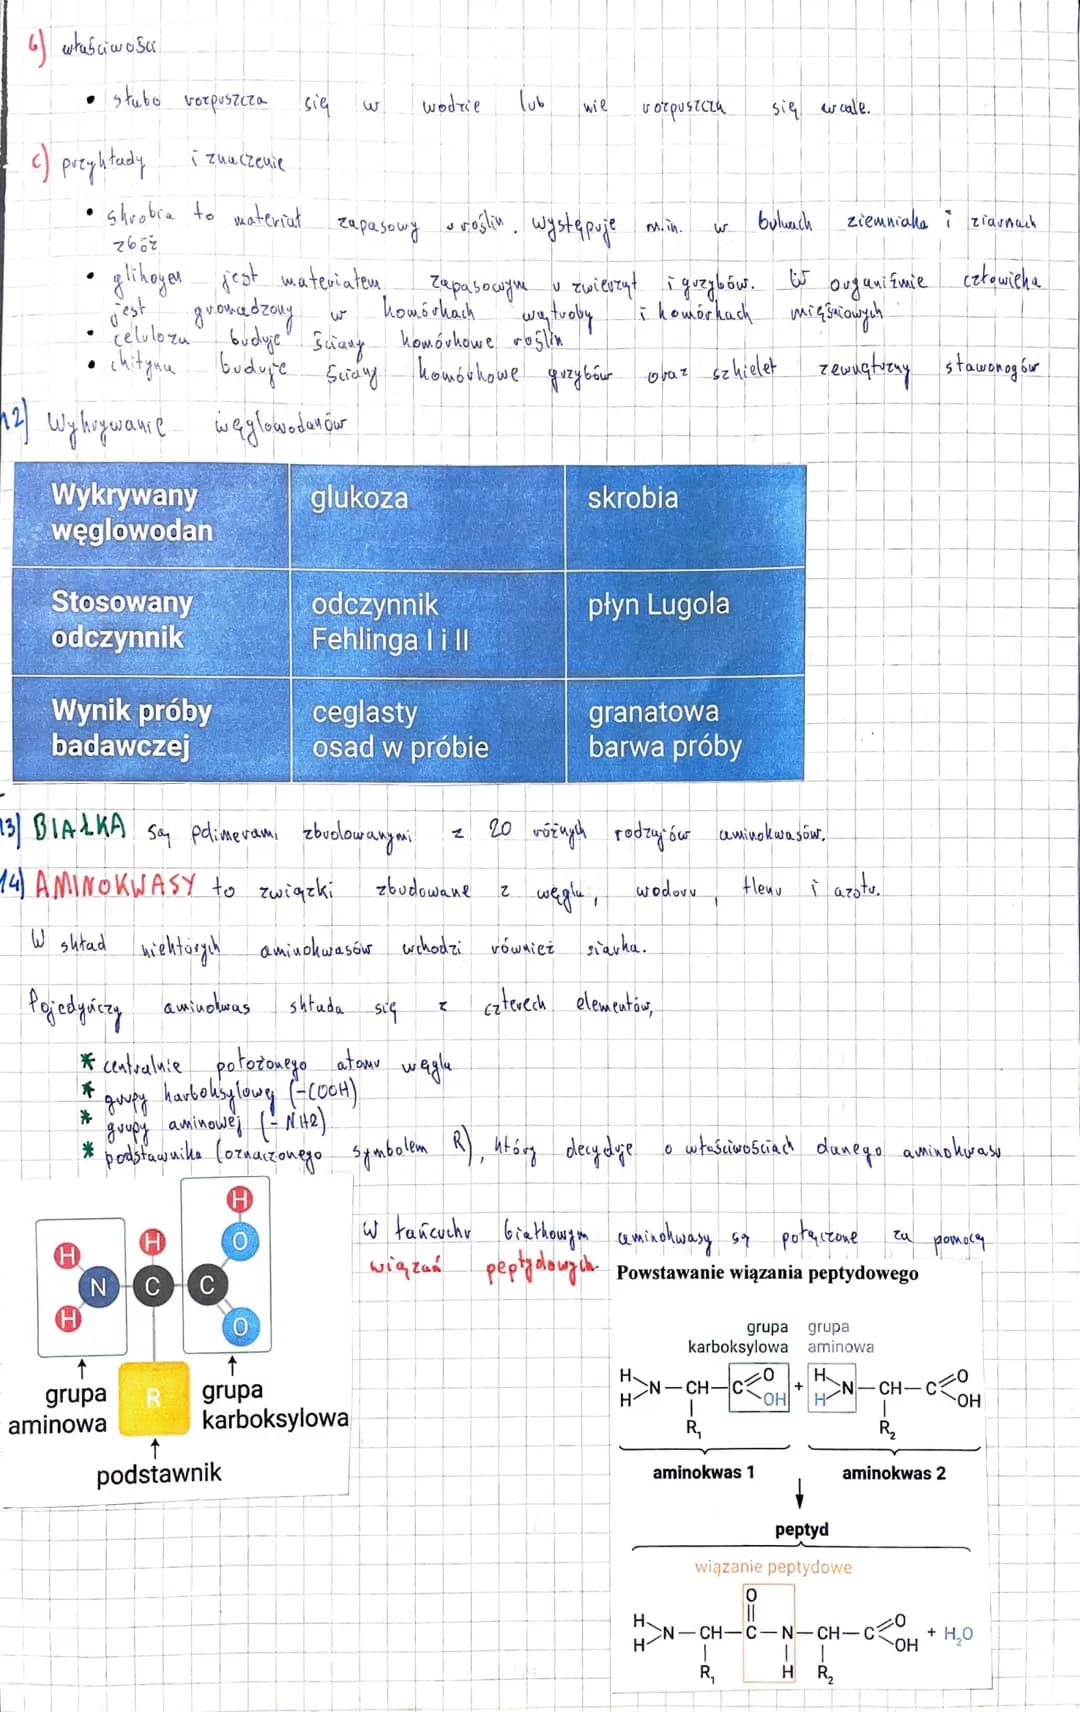 b) właściwości
• słabo rozpuszcza się w wodzie lub nie rozpuszcza się wcale.
c) przykłady i znaczenie
• skrobia to materiał zapasowy u roślin. występuje m.in. w bulwach ziemniaka i ziarnach
zbóż
• glikogen jest materiałem zapasowym u zwierząt i grzybów. W organiźmie człowieka
jest gromadzony w komórkach wątroby i komórkach mięśniowych
• celuloza buduje ściany komórkowe roślin
• chityna buduje ściany komórkowe grzybów oraz szkielet zewnątrzny stawonogów
12) Wykrywanie węglowodanów
Wykrywany węglowodan glukoza skrobia
Stosowany odczynnik odczynnik Fehlinga I i II płyn Lugola
Wynik próby badawczej ceglasty osad w próbie granatowa barwa próby
13) BIAŁKA są polimerami zbudowanymi z 20 różnych rodzajów aminokwasów.
14) AMINOKWASY to związki zbudowane z węgla, wodoru, tlenu i azotu.
W skład niektórych aminokwasów wchodzi również siarka.
Pojedyńczy aminokwas składa się z czterech elementów,
* centralnie położonego atomu węgla
* grupy karboksylowej (-COOH)
* grupy aminowej (-NH2)
* podstawnika (oznaczonego symbolem R), który decyduje o właściwościach danego aminokwasu
H H H N C C H O O R
grupa aminowa
grupa karboksylowa
podstawnik
W łańcuchu białkowym aminokwasy są połączone za pomocą
wiązań peptydowych
Powstawanie wiązania peptydowego
grupa karboksylowa
grupa aminowa
H H N — CH — C O OH + H H N — CH — C O OH
R₁ R₂
aminokwas 1 aminokwas 2
peptyd
wiązanie peptydowe
O
H H N — CH — C — N — CH — C O OH + H₂O
R₁ H R₂